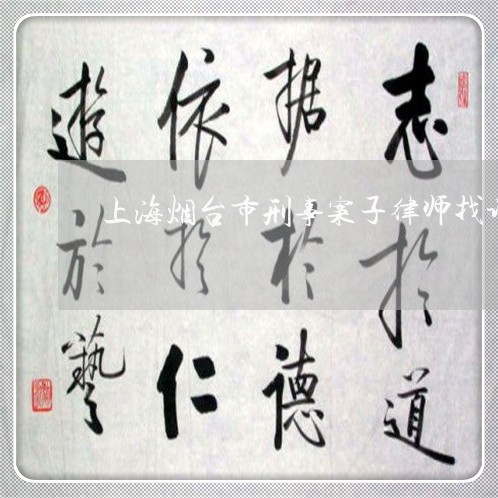 志於道
据於德
依於仁
遊於藝
上海烟台市刑事案子律师找